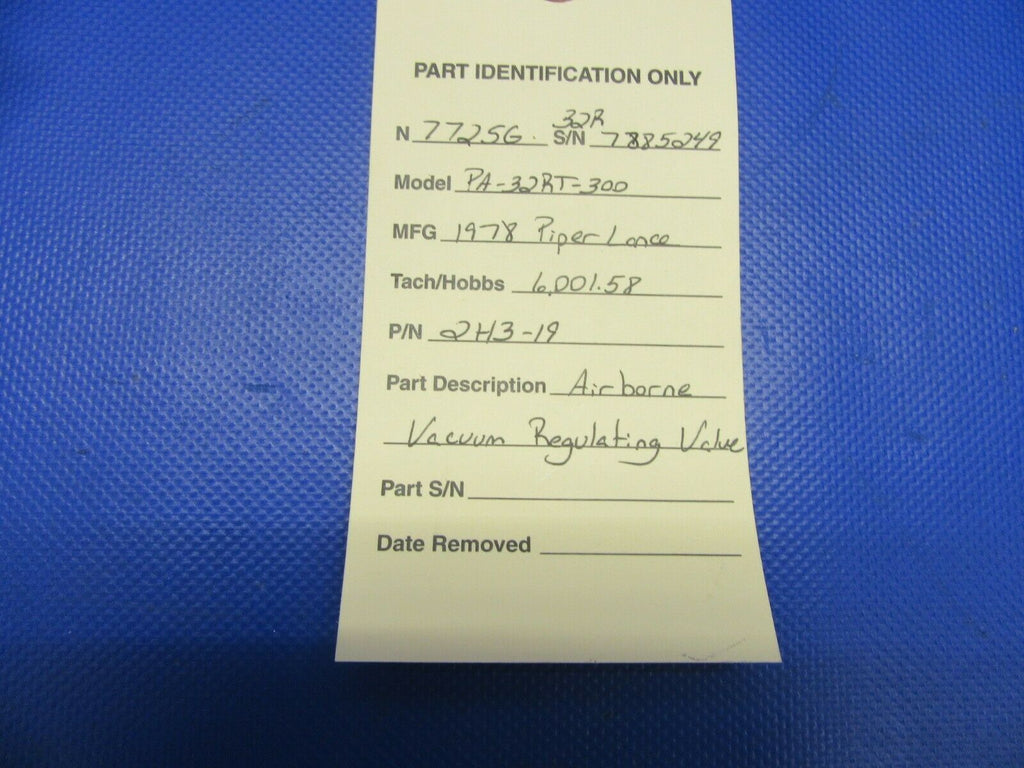 PART IDENTIFICATION ONLY
32R
N 7725G. S/N 7885249
Model PA-32RT-300
MFG 1978 Piper Lance
Tach/Hobbs 6,001.58
P/N 2H3-19
Part Description Airborne
Vacuum Regulating Valve
Part S/N
Date Removed